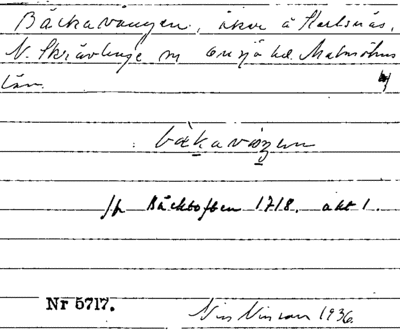 Bäckavången, åker å Hertsnäs,
N. Skrävlinge sn Onsjö hd. Malmöhus
län.
bäkavåŋen
jfr Bäcktoften 1718. akt 1.
Nr 5717.
Nils Nilsson 1936.